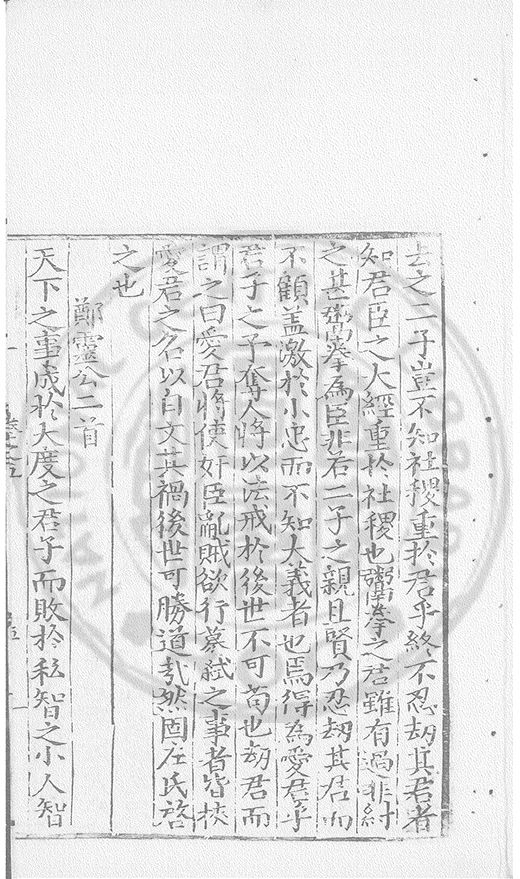 去之二子豈不知社稷重於君乎終不忍劫其君者
知君臣之大經重於社稷也鬻拳之君雖有過非紂
之甚鬻拳為臣非若二子之親且賢乃忍劫其君而
不顧盖激於小忠而不知大義者也焉得為愛君乎
君子之予奪人將以法戒於後世不可苟也劫君而
謂之曰愛君將使奸臣亂賊欲行簒弑之事者皆挾
愛君之名以自文其禍後世可勝道哉然固左氏啓
之也
鄭靈公二首
天下之事成於大度之君子而敗於私智之小人智